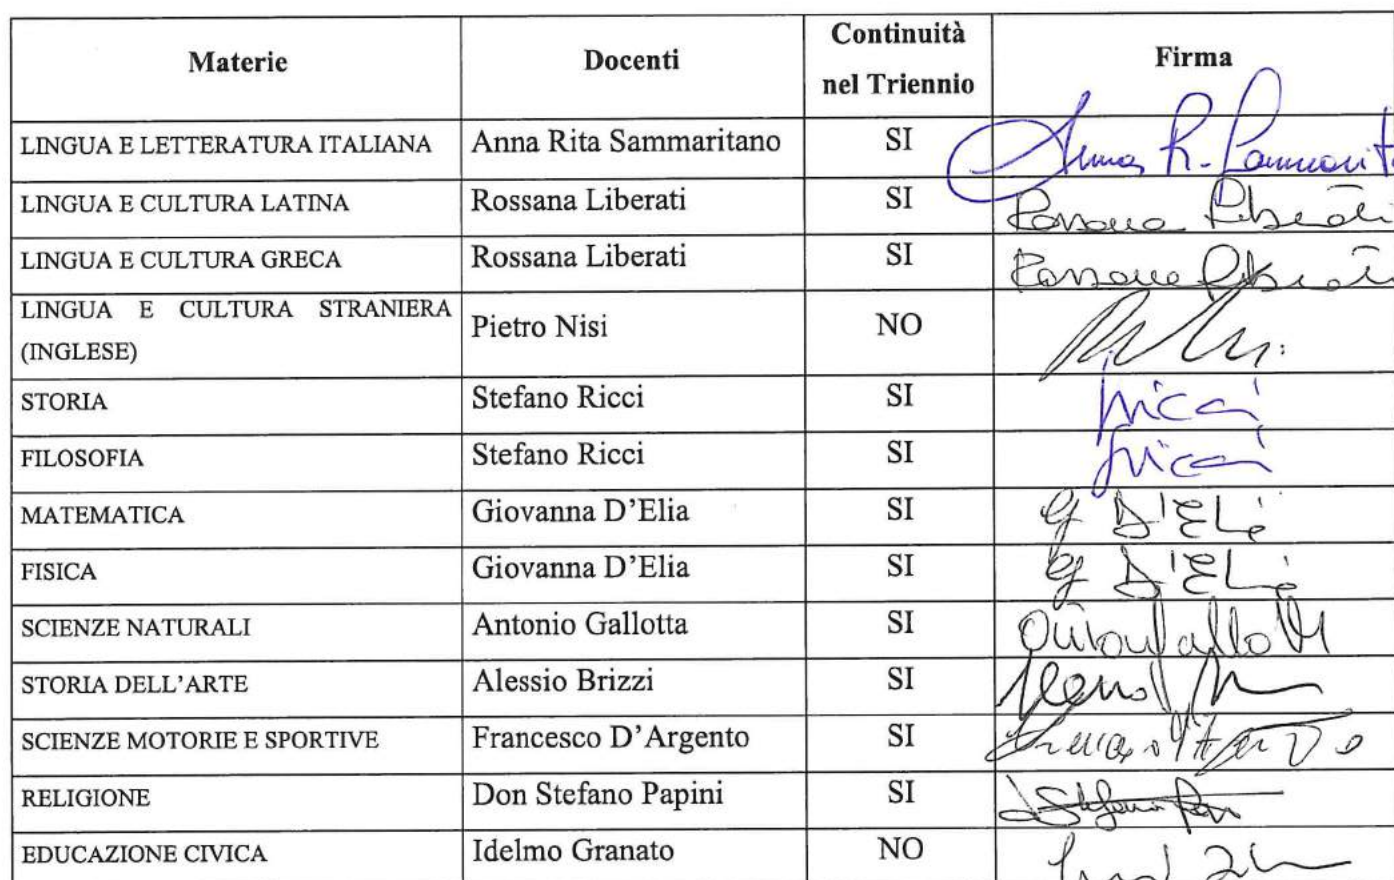 Materie Docenti Continuità nel Triennio Firma
LINGUA E LETTERATURA ITALIANA Anna Rita Sammaritano SI Anna R. Sammarit
LINGUA E CULTURA LATINA Rossana Liberati SI Rossana Liberati
LINGUA E CULTURA GRECA Rossana Liberati SI Rossana Liberati
LINGUA E CULTURA STRANIERA
(INGLESE) Pietro Nisi NO
STORIA Stefano Ricci SI Ricci
FILOSOFIA Stefano Ricci SI Ricci
MATEMATICA Giovanna D'Elia SI G D'Elia
FISICA Giovanna D'Elia SI G D'Elia
SCIENZE NATURALI Antonio Gallotta SI
STORIA DELL'ARTE Alessio Brizzi SI
SCIENZE MOTORIE E SPORTIVE Francesco D'Argento SI
RELIGIONE Don Stefano Papini SI
EDUCAZIONE CIVICA Idelmo Granato NO